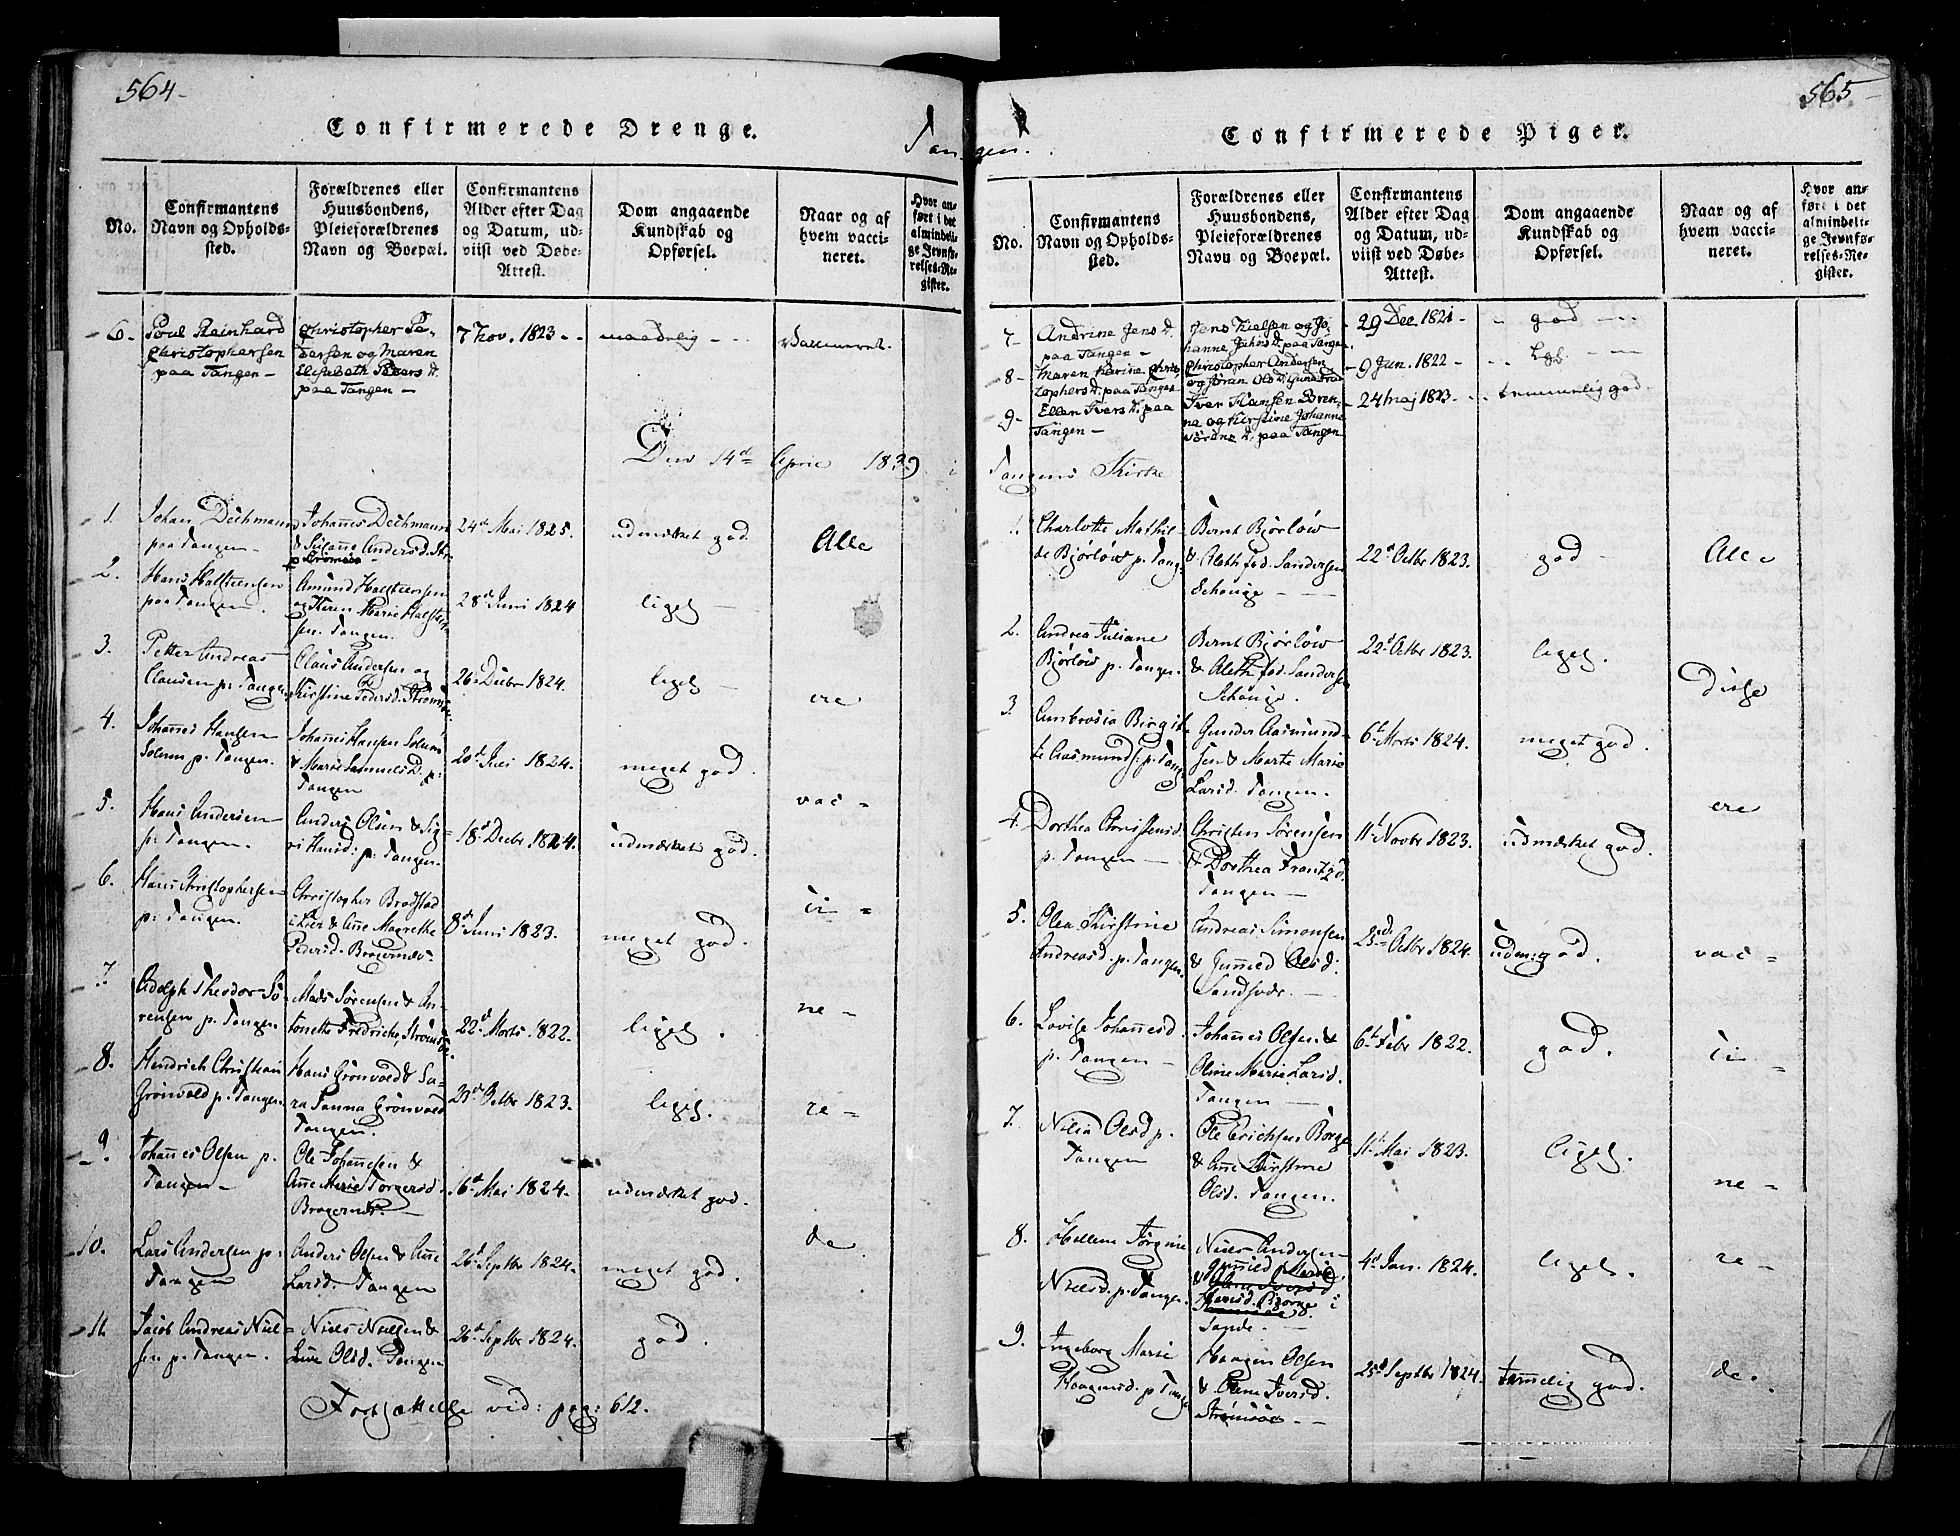 564
Confirmerede Drenge.
Tangen.
No.
Confirmantens
Navn og Opholds-
sted.
Forældrenes eller
Huusbondens,
Pleieforældrenes
Navn og Boepæl.
Confirmantens
Alder efter Dag
og Datum, ud-
viist ved Døbe-
Attest.
Dom angaaende
Kundskab og
Opførsel.
Naar og af
hvem vacci-
neret.
Hvor an-
ført i det
almindeli-
ge Jevnfø-
relses-Re-
gister.
6.
Poul Reinhard
Christophersen
paa Tangen
Christopher Pe-
dersen og Maren
Elisabeth Peders d.
paa Tangen
7 Nov. 1823
maadelig
Vaccineret.
Den 14de April 1839 i
1.
Johan Dechmann
paa Tangen
Johannes Dechmann
& Susanne Andersd.
p Strømsøe
24de Mai 1825.
udmærket god
Alle
2.
Hans Halsteensen
paa Tangen.
Amund Halsteensen
og Karen Marie Halstens-
sen. Tangen.
28de Juni 1824
ligel.
3.
Petter Andreas
Clausen p. Tangen
Claus Andersen og
Kirstine Pedersd. Strømsøe.
26de Decbr 1824.
ligel
ere
4.
Johannes Hansen
Solum p. Tangen.
Johannes Hansen Solum
& Marie Samuelsd. p.
Tangen
20de Juli 1824.
meget god.
vac-
5.
Hans Andersen
p. Tangen.
Anders Olsen & Sig-
ri Hansd: p: Tangen.
18de Decbr 1824.
udmærket god.
6.
Hans Christophersen
p. Tangen.
Christopher Bradstad
i Lier & Ane Magrethe
Pedersd. Bragernæs.
8de Juni 1823.
meget god.
ci-
7.
Adolph Theodor Sö-
rensen p. Tangen
Mads Sörensen & An-
tonette Fredricke, Strömsöe.
22de Marts 1822.
ligel.
ne-
8.
Hendrich Christian
Grönvold p. Tangen
Hans Grönvold & Sa-
ra Fanna Grönvold
Tangen.
23de Octbr 1823.
ligel.
re-
9.
Johannes Olsen p.
Tangen
Ole Johannesen &
Ane Marie Torgersd.
Bragernæs.
16de Mai 1824.
udmærket god.
10.
Lars Andersen p:
Tangen
Anders Olsen & Ane
Larsd. Tangen
26de Septbr 1824.
meget god.
de
11.
Jacob Andreas Niel-
sen p. Tangen.
Niels Nielsen &
Live Olsd. Tangen
26de Septbr 1824.
god.
Fortsættelse vid: pag: 612.
565
Confirmerede Piger.
No.
Confirmantens
Navn og Opholds-
sted.
Forældrenes eller
Huusbondens,
Pleieforældrenes
Navn og Boepæl.
Confirmantens
Alder efter Dag
og Datum, ud-
viist ved Døbe-
Attest.
Dom angaaende
Kundskab og
Opførsel.
Naar og af
hvem vacci-
neret.
Hvor an-
ført i det
almindeli-
ge Jevnfø-
relses-Re-
gister.
7
Andrine Jens d.
paa Tangen
Jens Nielsen og Jo-
hanne Jahns d. paa Tangen.
29 Dec 1821
god
8
Maren Karine Chris-
tophers d. paa Tangen
Christopher Andersen
og Jöran Ols d.
9 Jun. 1822
9
Ellen Ivers d. paa
Tangen
Iver Hansen
og Kirstine Johanne
d. paa Tangen
24 Maj 1823
temmelig god
Tangens Kirke
1.
Charlotte Mathil-
de Bjørlow p. Tang.
Bernt Bjørlow
& Aleth fød. Sandersen
Schouge
22d Octbr 1823.
god
Alle
2.
Andrea Juliane
Bjørlow p. Tangen.
Bernt Bjørlow
& Aleth fød. Sandersen
Schouge.
22d Octbr 1823.
ligel.
Disse
3.
Ambrosia Birgit-
te Aasmunds: p. Tang.
Gunder Aasmund-
sen & Marte Marie
Larsd. Tangen.
6t Marts 1824.
meget god.
ere
4.
Dorthea Christensd.
p. Tangen
Christen Sørensen
& Dorthea Frantzd.
Tangen
11t Novbr 1823.
udmærket god.
5.
Olea Kirstine
Andreasd. p. Tangen.
Andreas Simonsen
& Gunild Olsd.
Sandsvær.
23d Octbr 1824.
udm: god.
vac-
6.
Lovise Johannesd.
p. Tangen
Johannes Olsen &
Oline Marie Larsd.
Tangen
6t Febr 1822.
god.
ci
-
7.
Nilia Olsd p.
Tangen
Ole Erichsen Borge
& Ane Kirstine
Olsd. Tangen.
11t Mai 1823.
ligel.
ne-
8.
Hellene Jørgine
Nielsd. p. Tangen.
Niels Andersen
Gunild Marie
Hansd. Bjorge i
Sande.
4d Jan. 1824.
ligel.
re-
9.
Ingeborg Marie
Haagensd. p Tangen
Haagen Olsen
& Olene Iversd.
Strømsöe
25d Septbr 1824.
temmelig god.
de.